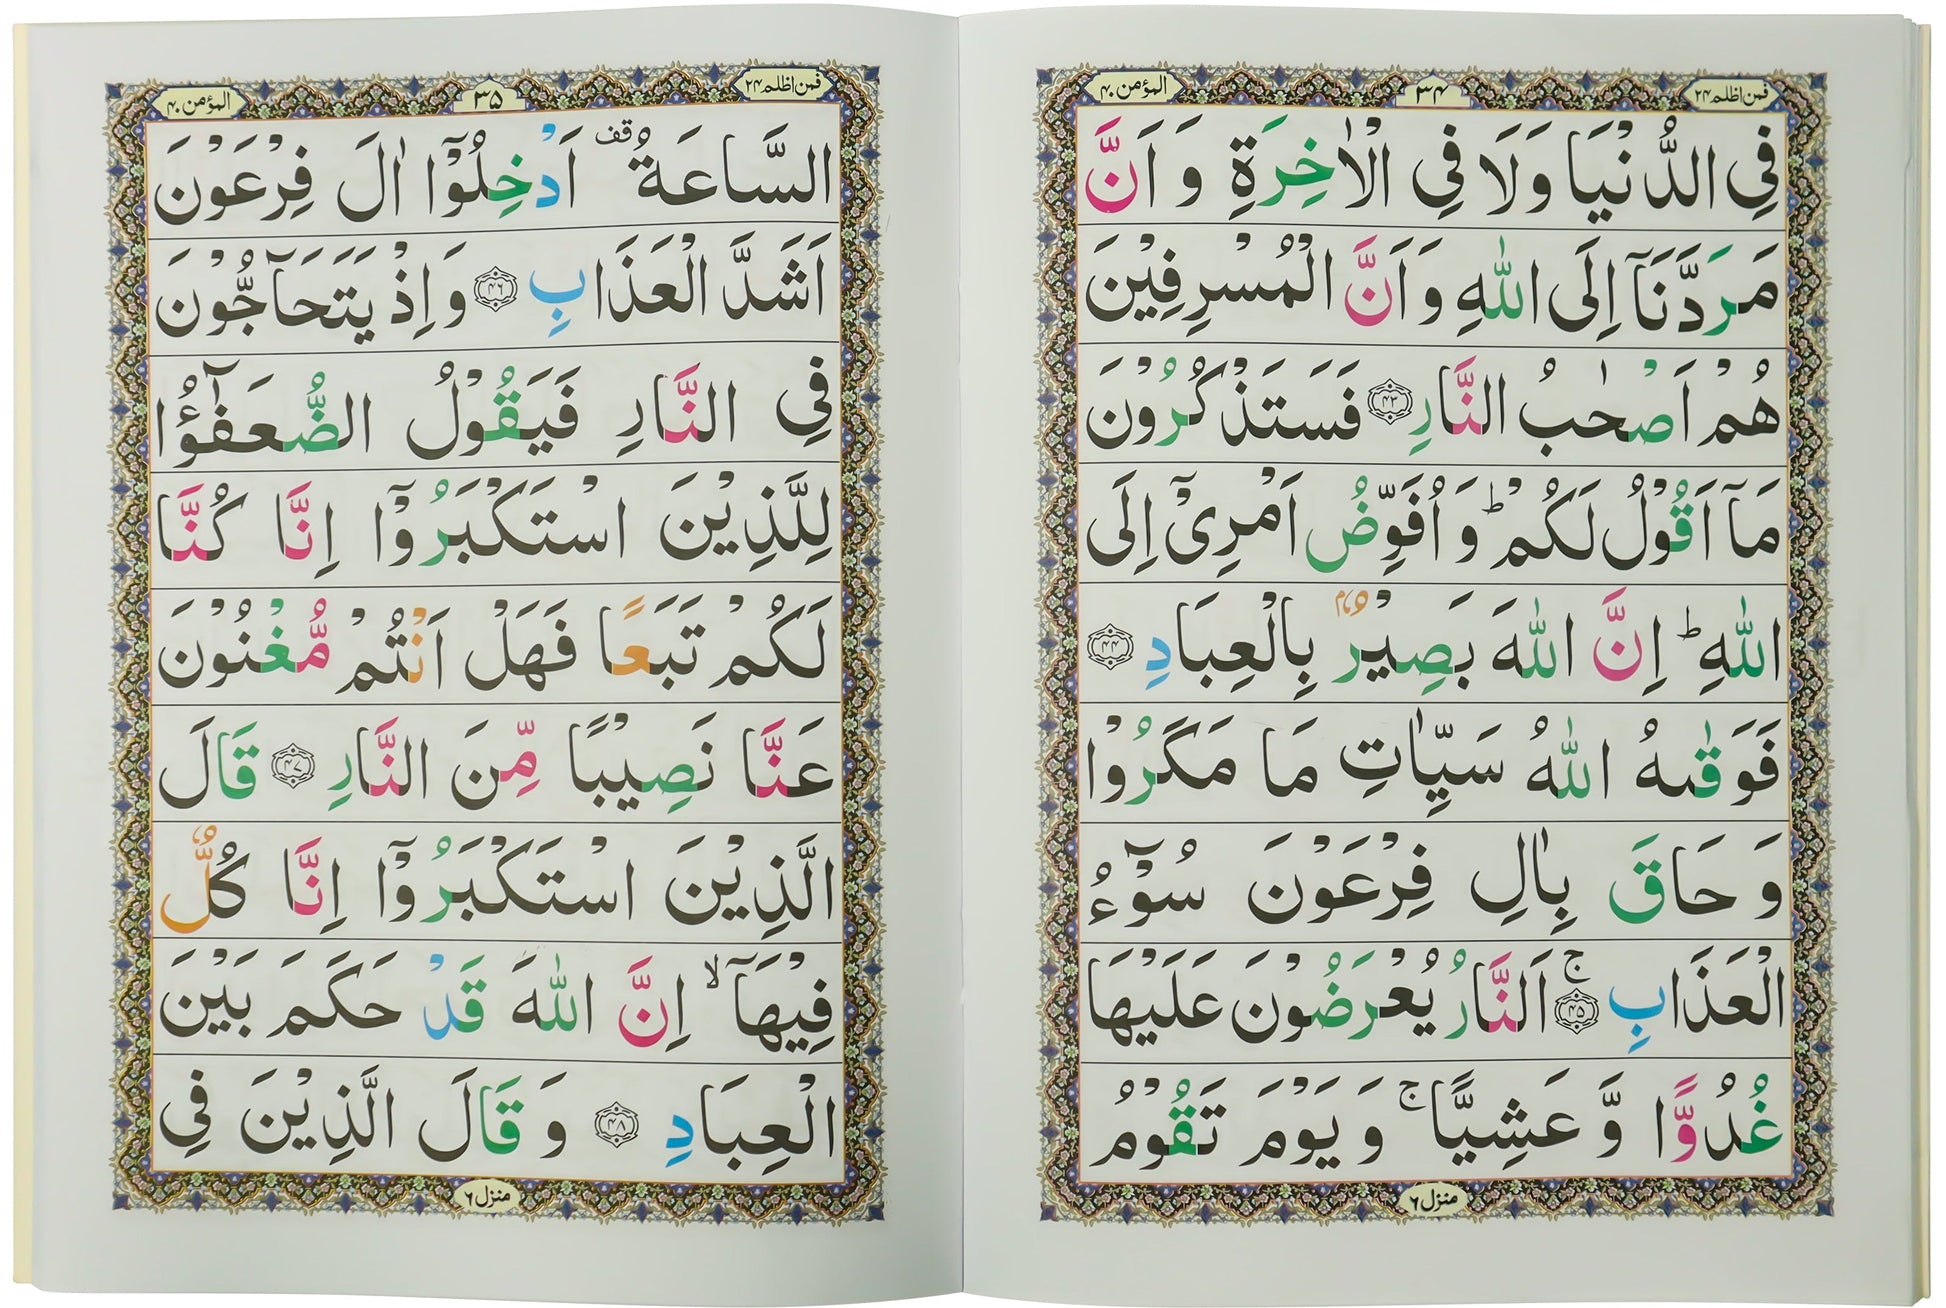 فمن اظلم ۲۴
۳۴
المؤمن ۴۰
فِي الدُّنْيَا وَلَا فِي الْاٰخِرَةِ وَ اَنَّ
مَرَدَّنَآ اِلَى اللّٰهِ وَ اَنَّ الْمُسْرِفِيْنَ
هُمْ اَصْحٰبُ النَّارِ ﴿۴۳﴾ فَسَتَذْكُرُوْنَ
مَآ اَقُوْلُ لَكُمْ ؕ وَ اُفَوِّضُ اَمْرِيْٓ اِلَى
اللّٰهِ ؕ اِنَّ اللّٰهَ بَصِيْرٌۢ بِالْعِبَادِ ﴿۴۴﴾
فَوَقٰىهُ اللّٰهُ سَيِّاٰتِ مَا مَكَرُوْا
وَ حَاقَ بِاٰلِ فِرْعَوْنَ سُوْٓءُ
الْعَذَابِ ﴿۴۵﴾ ۚ اَلنَّارُ يُعْرَضُوْنَ عَلَيْهَا
غُدُوًّا وَّ عَشِيًّا ۚ وَ يَوْمَ تَقُوْمُ
منزل ۶
فمن اظلم ۲۴
۳۵
المؤمن ۴۰
السَّاعَةُ ۫ قف اَدْخِلُوْٓا اٰلَ فِرْعَوْنَ
اَشَدَّ الْعَذَابِ ﴿۴۶﴾ وَ اِذْ يَتَحَآجُّوْنَ
فِي النَّارِ فَيَقُوْلُ الضُّعَفٰٓؤُا
لِلَّذِيْنَ اسْتَكْبَرُوْٓا اِنَّا كُنَّا
لَكُمْ تَبَعًا فَهَلْ اَنْتُمْ مُّغْنُوْنَ
عَنَّا نَصِيْبًا مِّنَ النَّارِ ﴿۴۷﴾ قَالَ
الَّذِيْنَ اسْتَكْبَرُوْٓا اِنَّا كُلٌّ
فِيْهَآ ۙ اِنَّ اللّٰهَ قَدْ حَكَمَ بَيْنَ
الْعِبَادِ ﴿۴۸﴾ وَ قَالَ الَّذِيْنَ فِي
منزل ۶